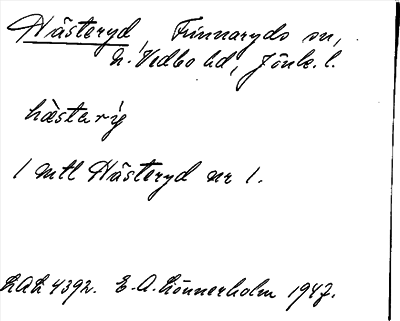 Hästeryd, Finnaryds sn,
N. Vedbo hd, Jönk. l.
hàsterýg
1 mtl Hästeryd nr 1.
LAL 4392. E. A. Lönnerholm 1947.